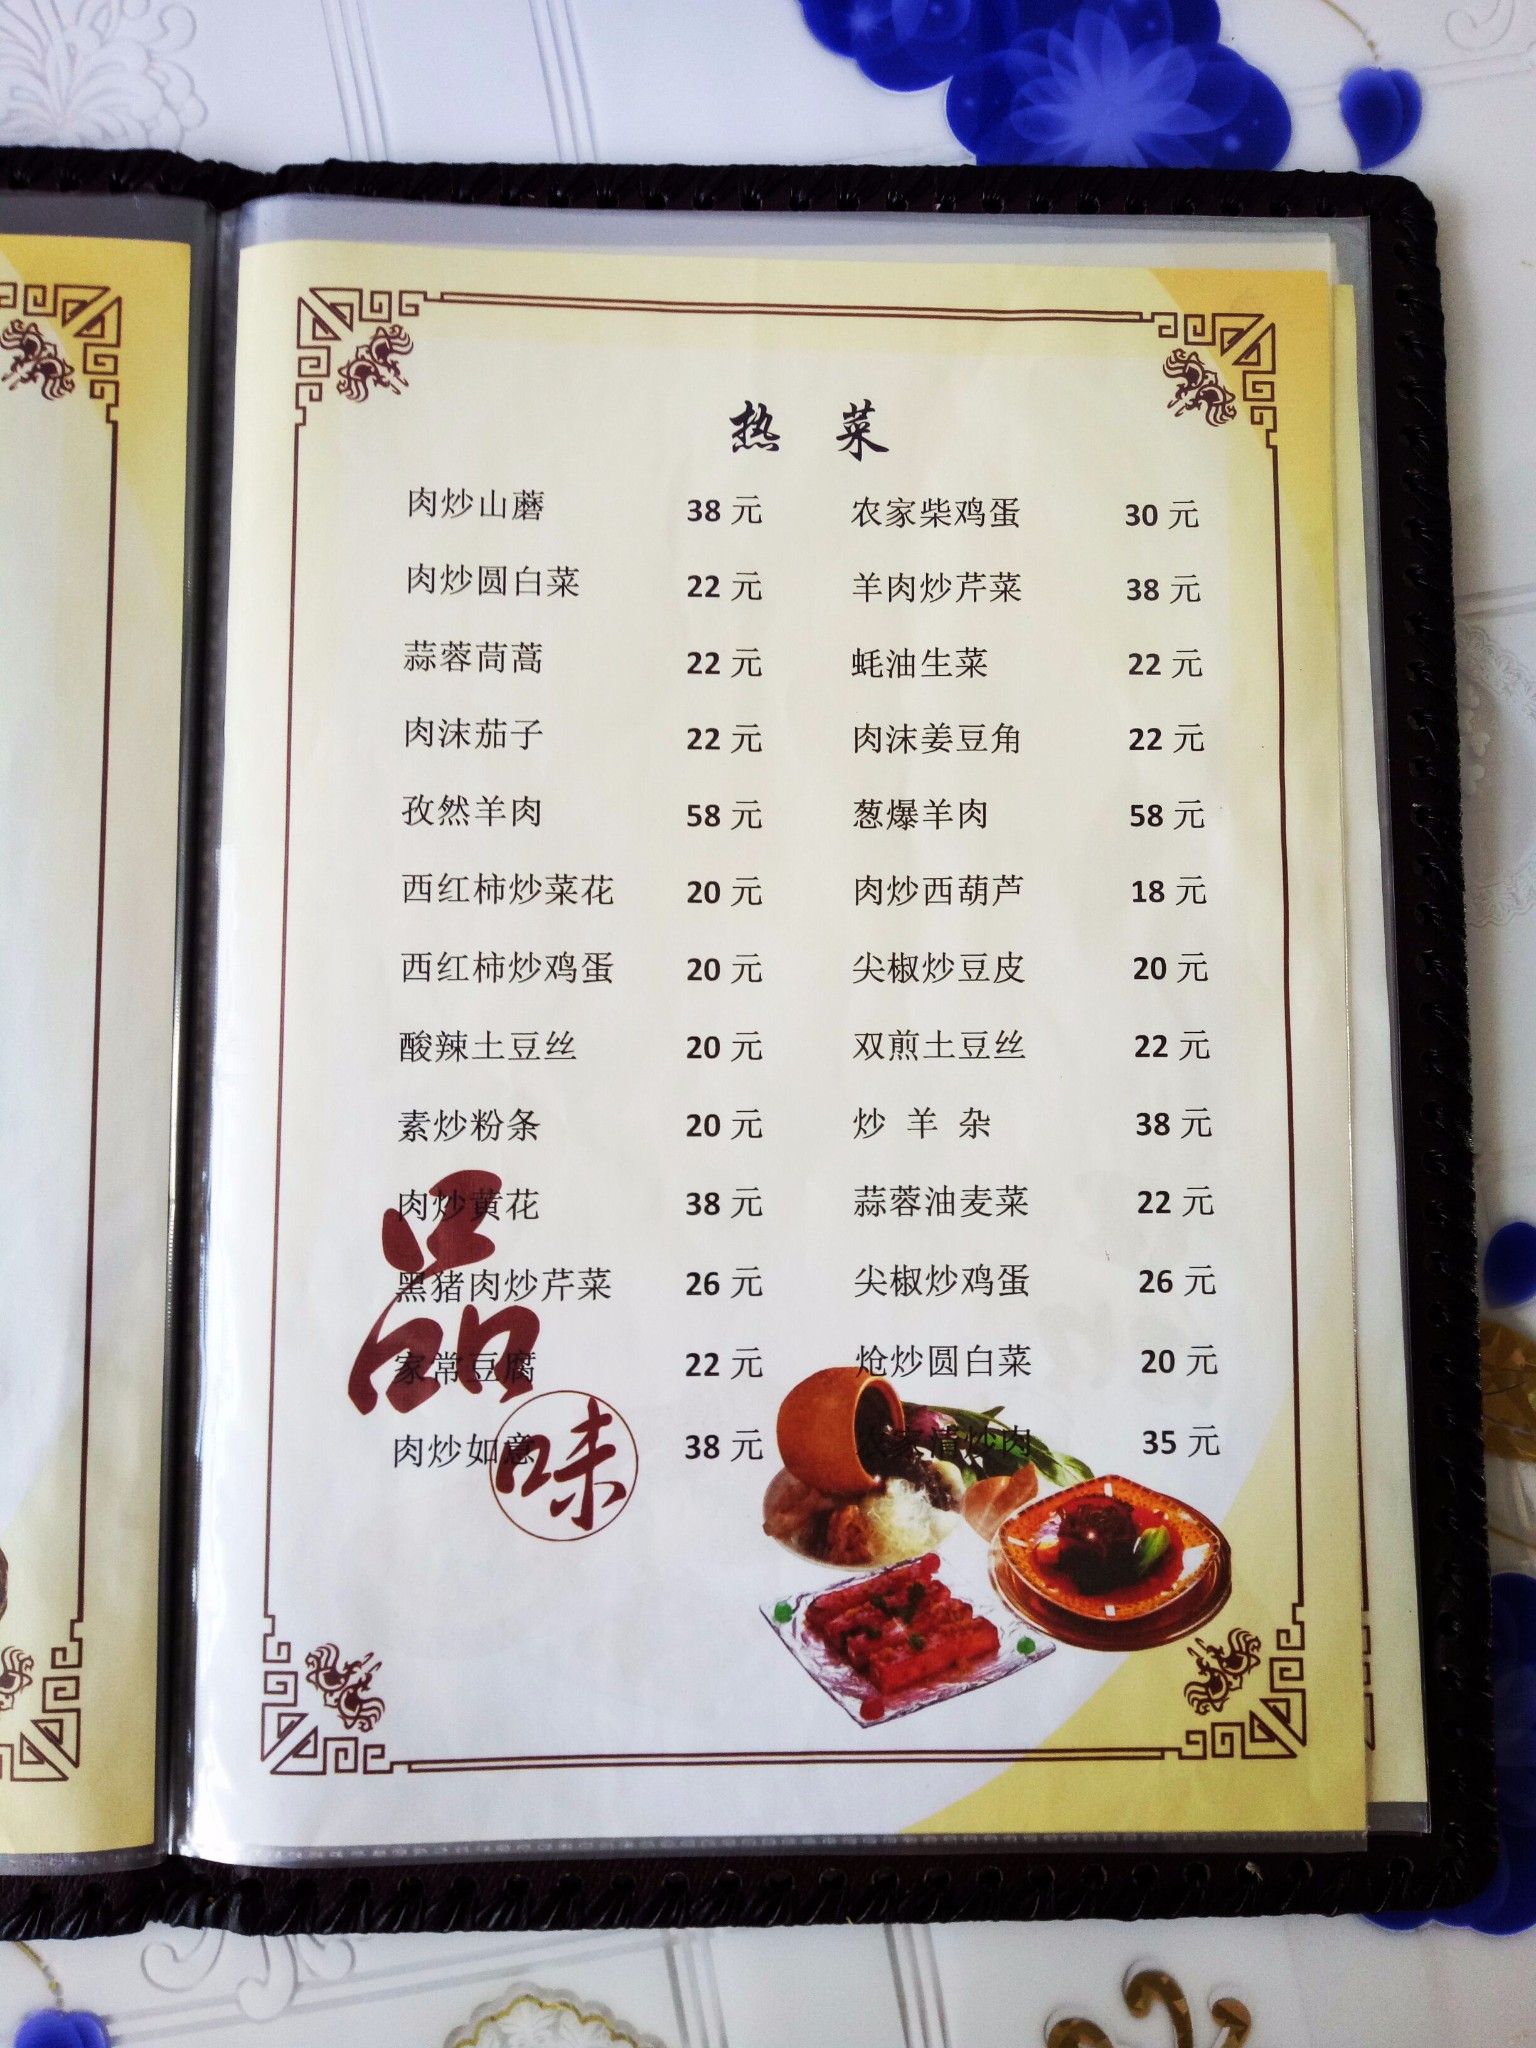 热 菜
肉炒山蘑 38 元 农家柴鸡蛋 30 元
肉炒圆白菜 22 元 羊肉炒芹菜 38 元
蒜蓉茼蒿 22 元 蚝油生菜 22 元
肉沫茄子 22 元 肉沫姜豆角 22 元
孜然羊肉 58 元 葱爆羊肉 58 元
西红柿炒菜花 20 元 肉炒西葫芦 18 元
西红柿炒鸡蛋 20 元 尖椒炒豆皮 20 元
酸辣土豆丝 20 元 双煎土豆丝 22 元
素炒粉条 20 元 炒 羊 杂 38 元
肉炒黄花 38 元 蒜蓉油麦菜 22 元
黑猪肉炒芹菜 26 元 尖椒炒鸡蛋 26 元
家常豆腐 22 元 炝炒圆白菜 20 元
肉炒如意 38 元 农家清炒肉 35 元
品
味